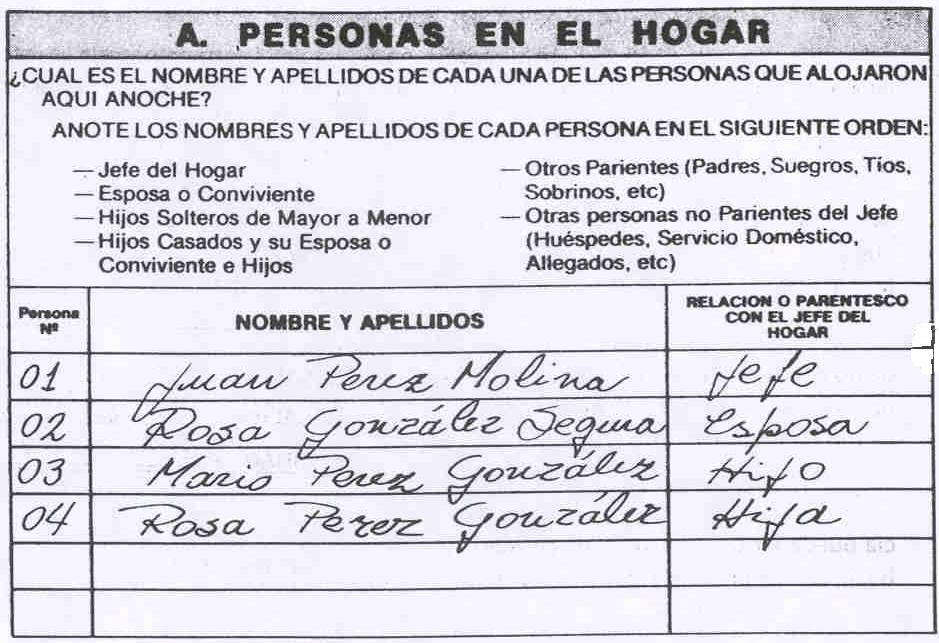 A. PERSONAS EN EL HOGAR
¿CUAL ES EL NOMBRE Y APELLIDOS DE CADA UNA DE LAS PERSONAS QUE ALOJARON
AQUI ANOCHE?
ANOTE LOS NOMBRES Y APELLIDOS DE CADA PERSONA EN EL SIGUIENTE ORDEN:
— Jefe del Hogar
— Esposa o Conviviente
— Hijos Solteros de Mayor a Menor
— Hijos Casados y su Esposa o
Conviviente e Hijos
— Otros Parientes (Padres, Suegros, Tíos,
Sobrinos, etc)
— Otras personas no Parientes del Jefe
(Huéspedes, Servicio Doméstico,
Allegados, etc)
Persona Nº NOMBRE Y APELLIDOS RELACION O PARENTESCO CON EL JEFE DEL HOGAR
01 Juan Perez Molina Jefe
02 Rosa González Segura Esposa
03 Mario Perez González Hijo
04 Rosa Perez González Hija